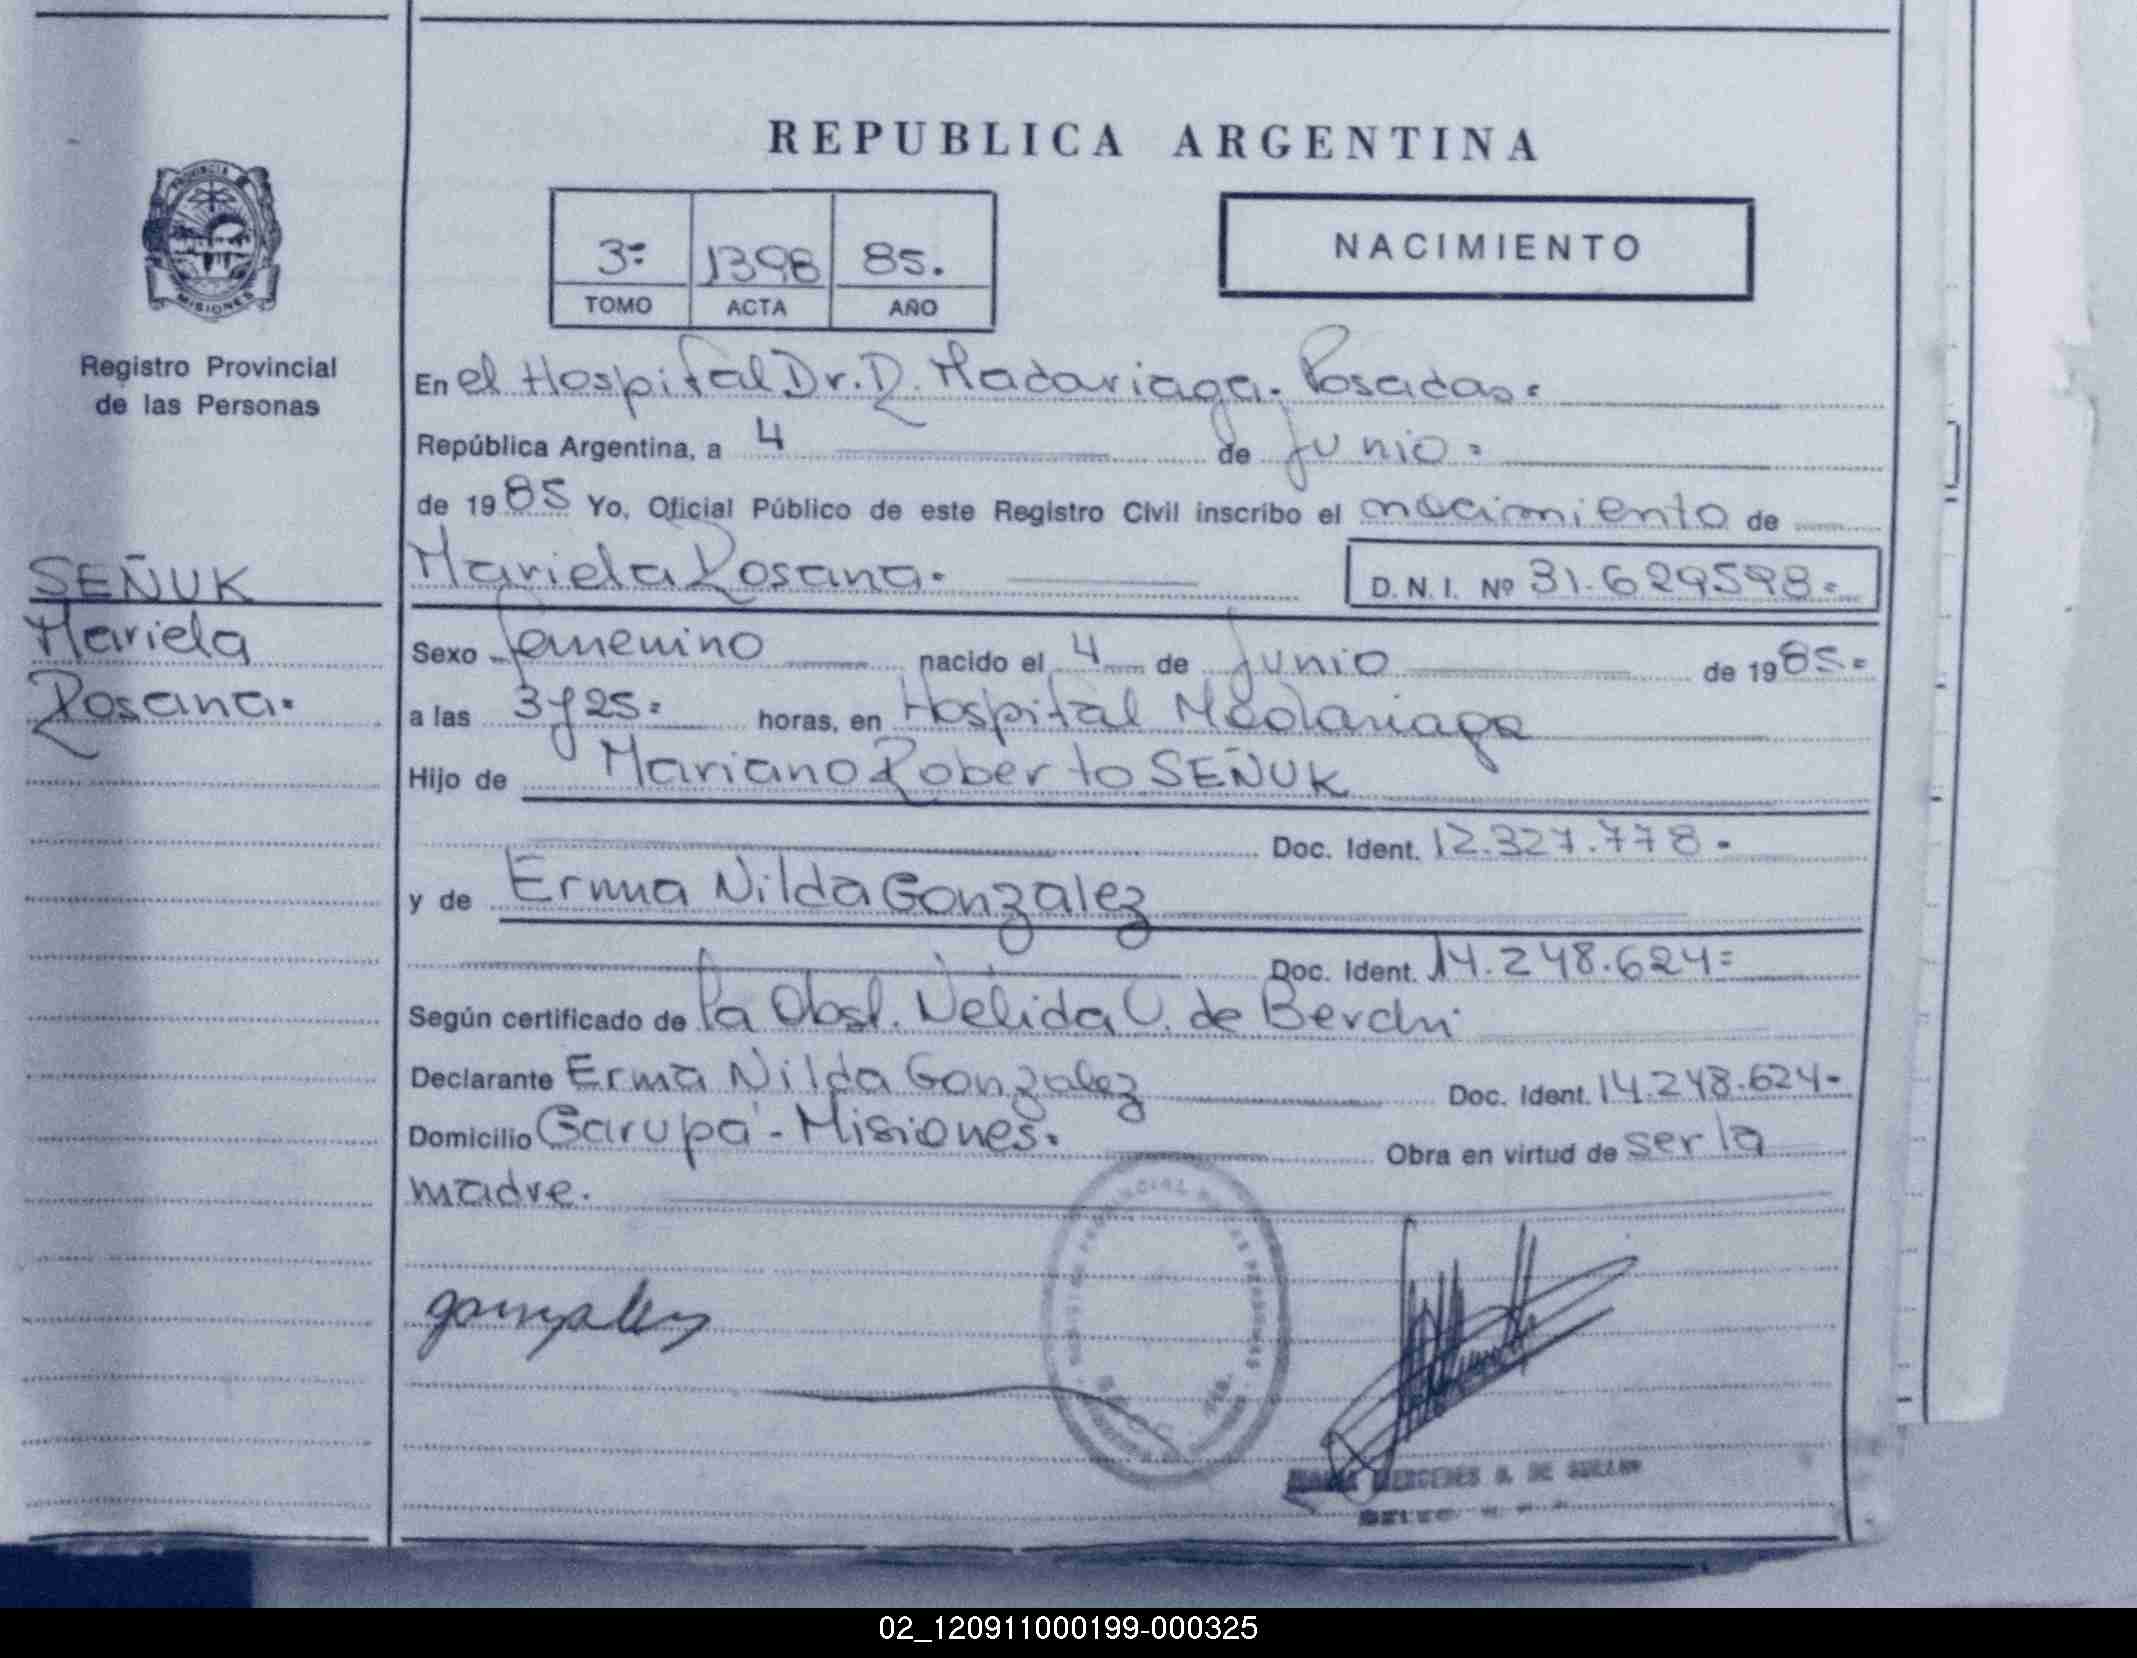 REPUBLICA ARGENTINA
PROVINCIA DE
MISIONES
3º 1398 85.
TOMO ACTA AÑO
NACIMIENTO
Registro Provincial
de las Personas
SEÑUK
Mariela
Rosana.
En el Hospital Dr. R. Madariaga. Posadas.
República Argentina, a 4 de Junio.
de 1985 Yo, Oficial Público de este Registro Civil inscribo el nacimiento de
Mariela Rosana. D.N.I. Nº 31.629598.
Sexo femenino nacido el 4 de Junio de 1985.
a las 3 y 25. horas, en Hospital Madariaga
Hijo de Mariano Roberto SEÑUK
Doc. Ident. 12.327.778.
y de Erma Nilda Gonzalez
Doc. Ident. 14.248.624
Según certificado de la Obst. Nélida C. de Berchi
Declarante Erma Nilda Gonzalez Doc. Ident. 14.248.624.
Domicilio Garupá - Misiones. Obra en virtud de ser la
madre.
gonzalez
MERCEDES
02_120911000199-000325